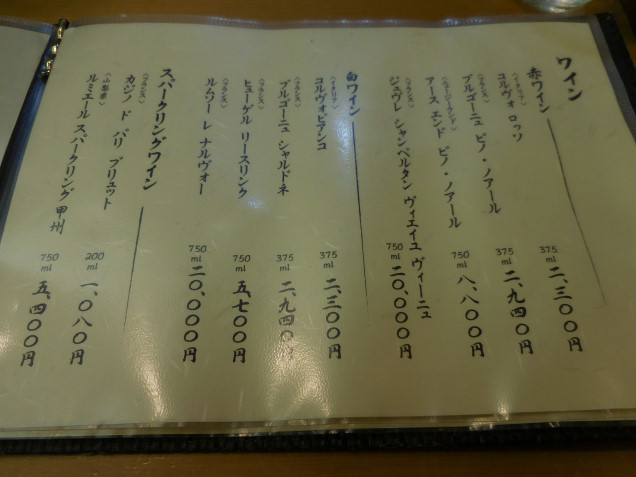 ワイン
赤ワイン
〈イタリア〉
コルヴォ ロッソ 375ml 二、三〇〇円
〈フランス〉
ブルゴーニュ ピノ・ノアール 375ml 二、九四〇円
アース エンド ピノ・ノアール 750ml 八、八〇〇円
〈フランス〉
ジュヴレ シャンベルタン ヴィエイユ ヴィーニュ 750ml 二〇、〇〇〇円
白ワイン
〈イタリア〉
コルヴォビアンコ 375ml 二、三〇〇円
〈フランス〉
ブルゴーニュ シャルドネ 375ml 二、九四〇円
〈フランス〉
ヒューゲル リースリンク 750ml 五、七〇〇円
〈フランス〉
ルムワーレ ナルヴォー 750ml 二〇、〇〇〇円
スパークリングワイン
〈フランス〉
カジノ ド パリ ブリュット 200ml 一、〇八〇円
〈山梨県〉
ルミエール スパークリング 甲州 750ml 五、四〇〇円